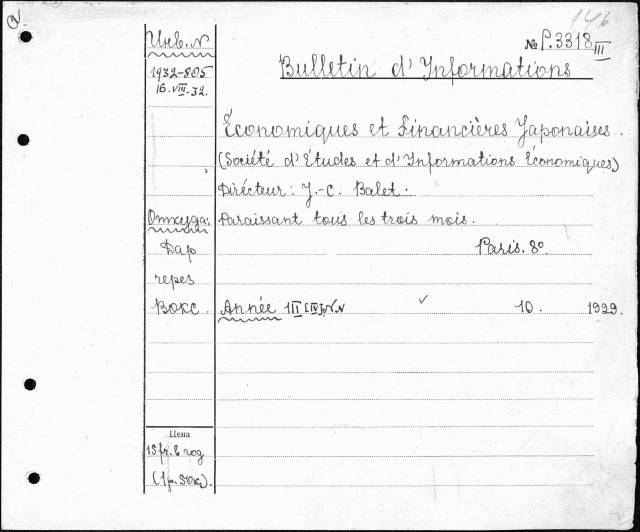 146
Инв. N
№ P.3318 III
1932-805
16.VIII.32.
Bulletin d'Informations
Économiques et Financières Japonaises.
(Société d'Études et d'Informations Économiques)
Directeur: J.-C. Balet.
Откуда:
Paraissant tous les trois mois.
Дар
Paris. 8º.
через
Вокс.
Année III [IV], N.N 10. 1929.
Цена
15 fr. в год
(1р. 50к.).